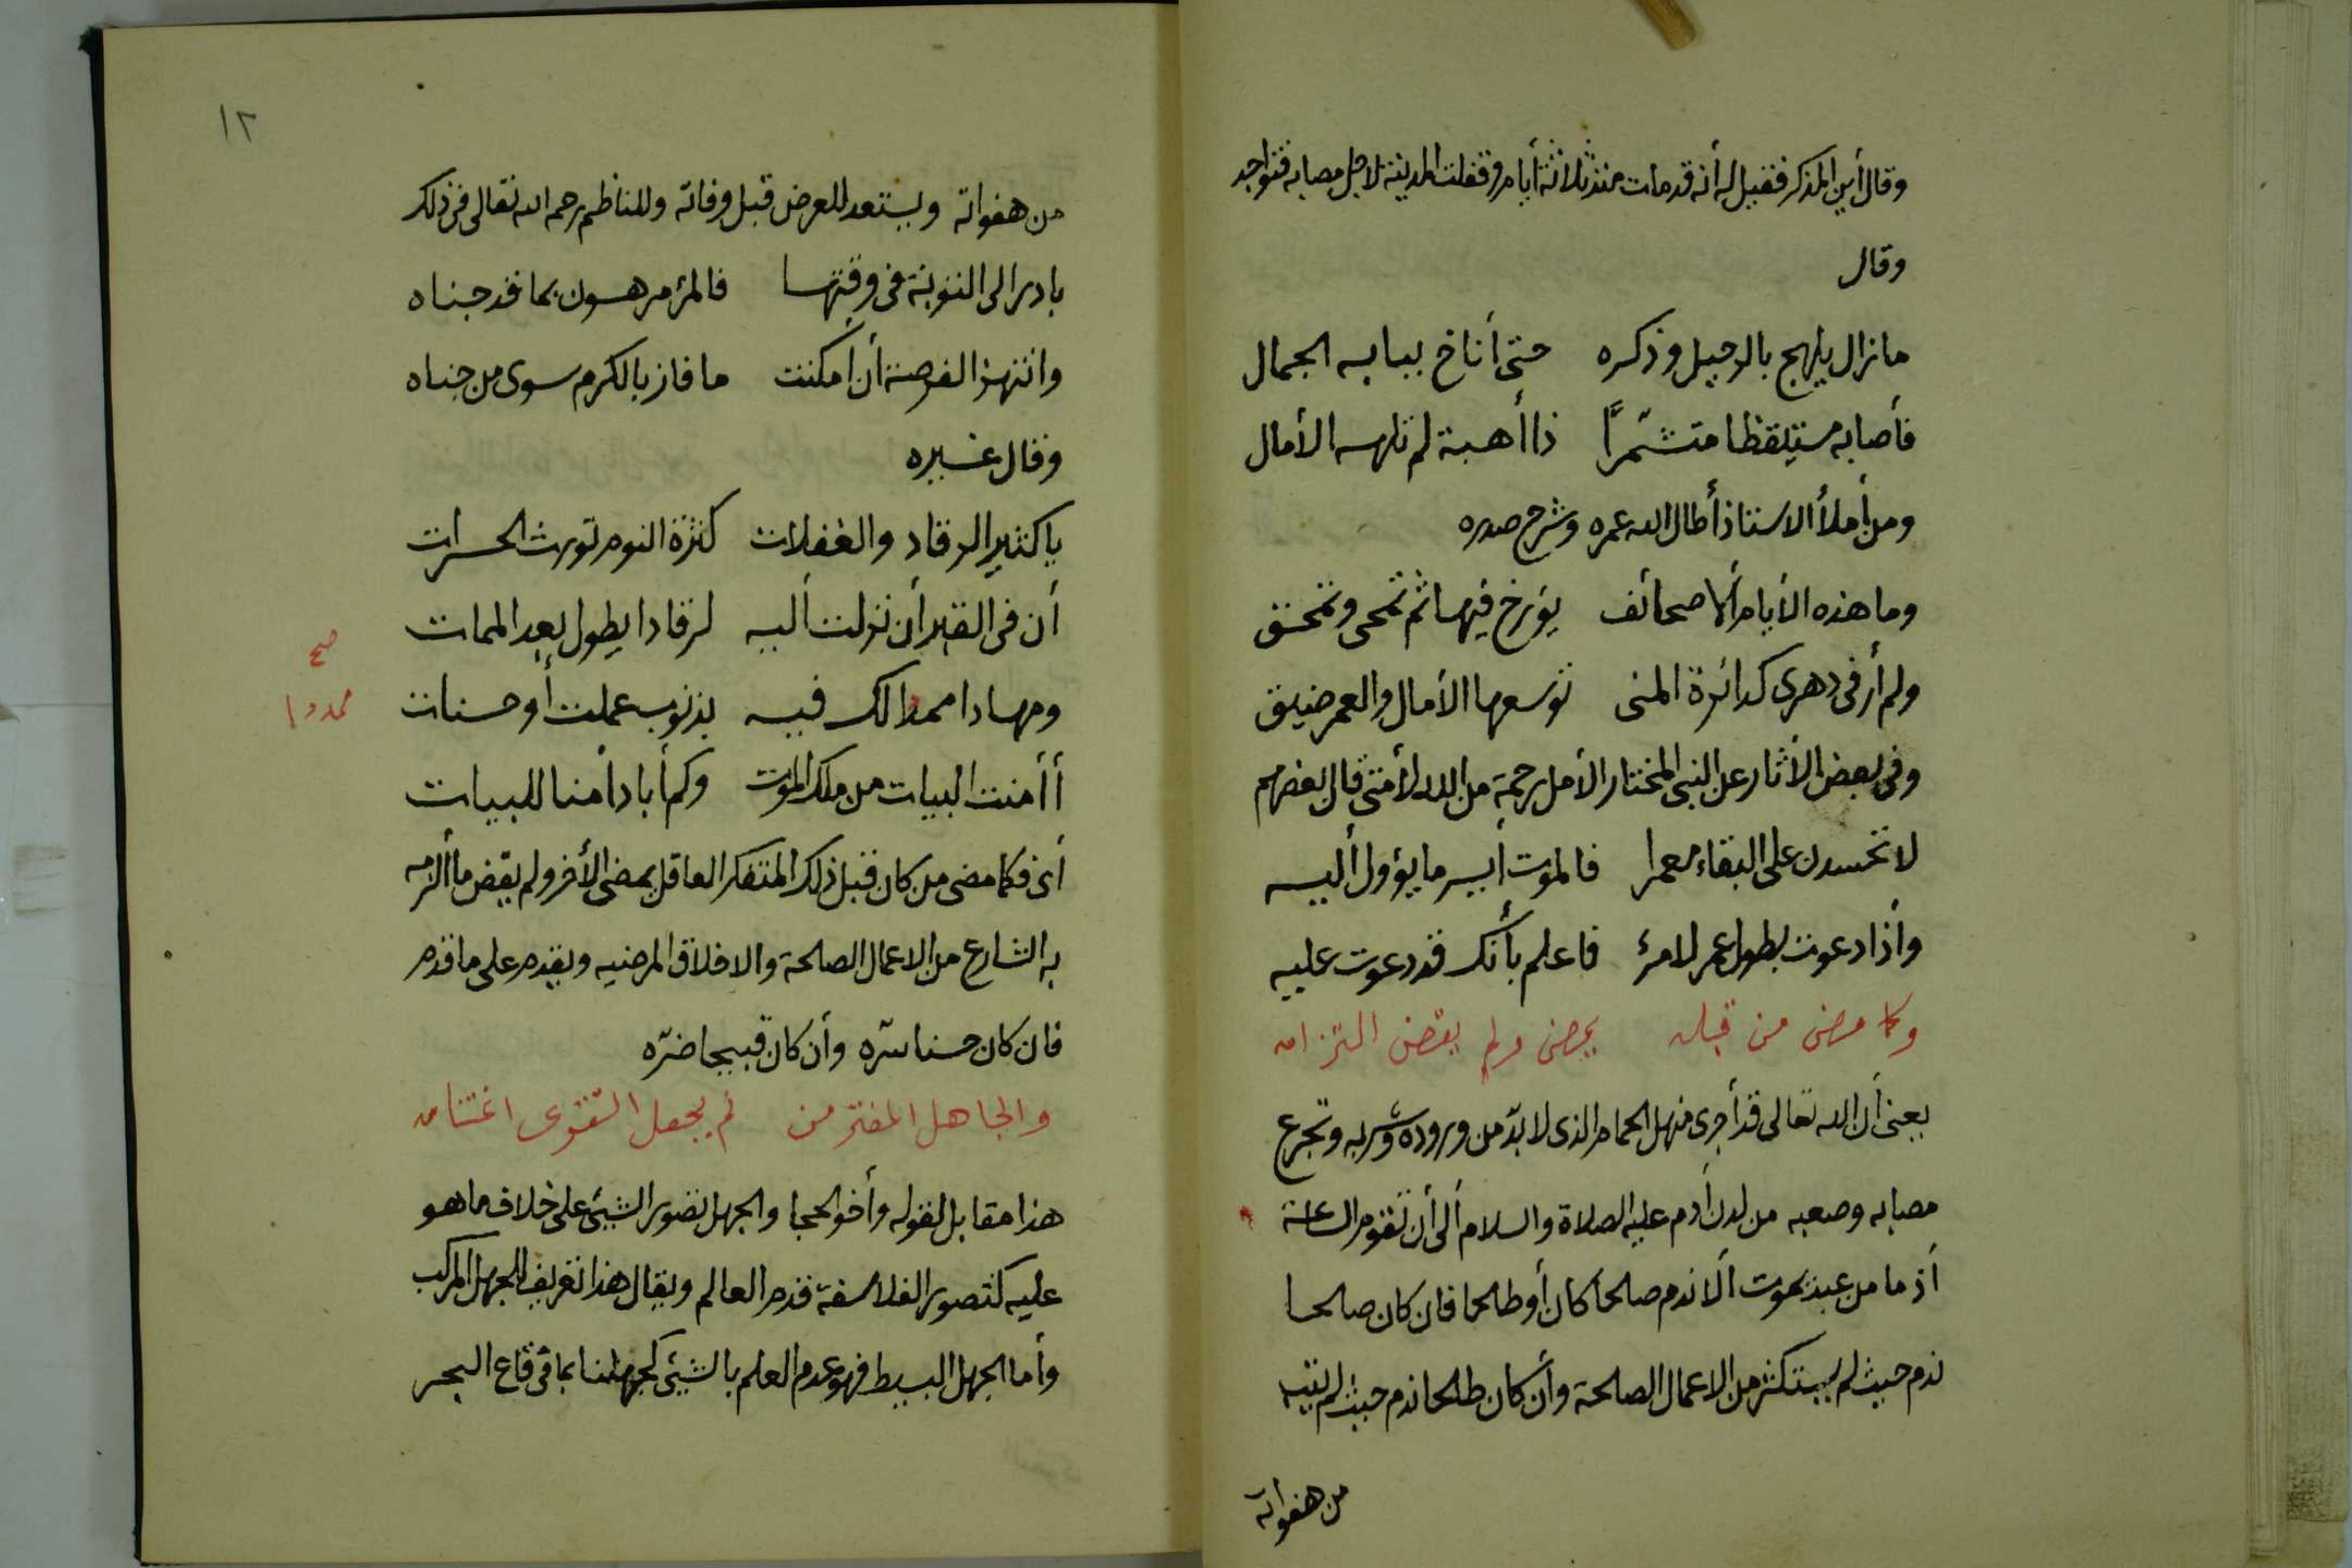 وقال أين المذكر فقيل له أنه قد مات منذ ثلاثة أيام وقفلت المدينة لاجل مصابه فتواجد
وقال
مازال يلهج بالرحيل وذكره حتى أناخ ببابه الجمال
فأصابه مستيقظا متشمّرًا ذا أهبة لم تلهه الأمال
ومن أملأ الاستاذ أطال الله عمره وشرح صدره
وما هذه الأيام ألا صحائف يؤرخ فيها ثم تمحى وتمحق
ولم أر فى دهرى كدائرة المنى توسعها الأمال والعمر ضيق
وفى بعض الأثار عن النبى المختار الأمل رحمة من الله لأمتى قال بعضهم
لا تحسدن على البقاء معمرا فالموت أيسر ما يؤول أليه
وأذا دعوت بطول عمر لامرئ فاعلم بأنك قد دعوت عليه
وكما مضى من قبله يمضى ولم يقض التزامه
يعنى أن الله تعالى قد أجرى منهل الحمام الذى لا بدّ من وروده وشربه وتجرع
مصابه وصعبه من لدن أدم عليه الصلاة والسلام ألى أن تقوم الساعة
أذ ما من عبد يموت ألا ندم صالحا كان أو طالحا فان كان صالحا
ندم حيث لم يستكثر من الاعمال الصالحة وأن كان طالحا ندم حيث لم يتبه
من هفواته
١٢
من هفواته ويستعد للعرض قبل وفاته وللناظم رحمه الله تعالى فى ذلك
بادر الى التوبة فى وقتها فالمرء مرهون بما قد جناه
وانتهز الفرصة أن أمكنت ما فاز بالكرم سوى من جناه
وقال غيره
يا كثير الرقاد والغفلات كثرة النوم تورث الحسرات
أن فى القبر أن نزلت أليه لرقادا يطول بعد الممات
ومهادا ممدا لك فيه بذنوب عملت أو حسنات
صح
ممدودا
أأمنت البيات من ملك الموت وكم أباد أمنا للبيات
أى فكما مضى من كان قبل ذلك المتفكر العاقل يمضى الأخر ولم يقض ما ألزمه
به الشارع من الاعمال الصالحة والاخلاق المرضيه ويقدم على ما قدم
فان كان حسنا سرّه وأن كان قبيحا ضرّه
والجاهل المغتر من لم يجعل التقوى اغتنامه
هذا مقابل لقوله وأخو الحجا والجهل تصور الشيئ على خلاف ما هو
عليه كتصور الفلاسفة قدم العالم ويقال هذا تعريف للجهل المركب
وأما الجهل البسيط فهو عدم العلم بالشيئ كجهلنا بما فى قاع البحر